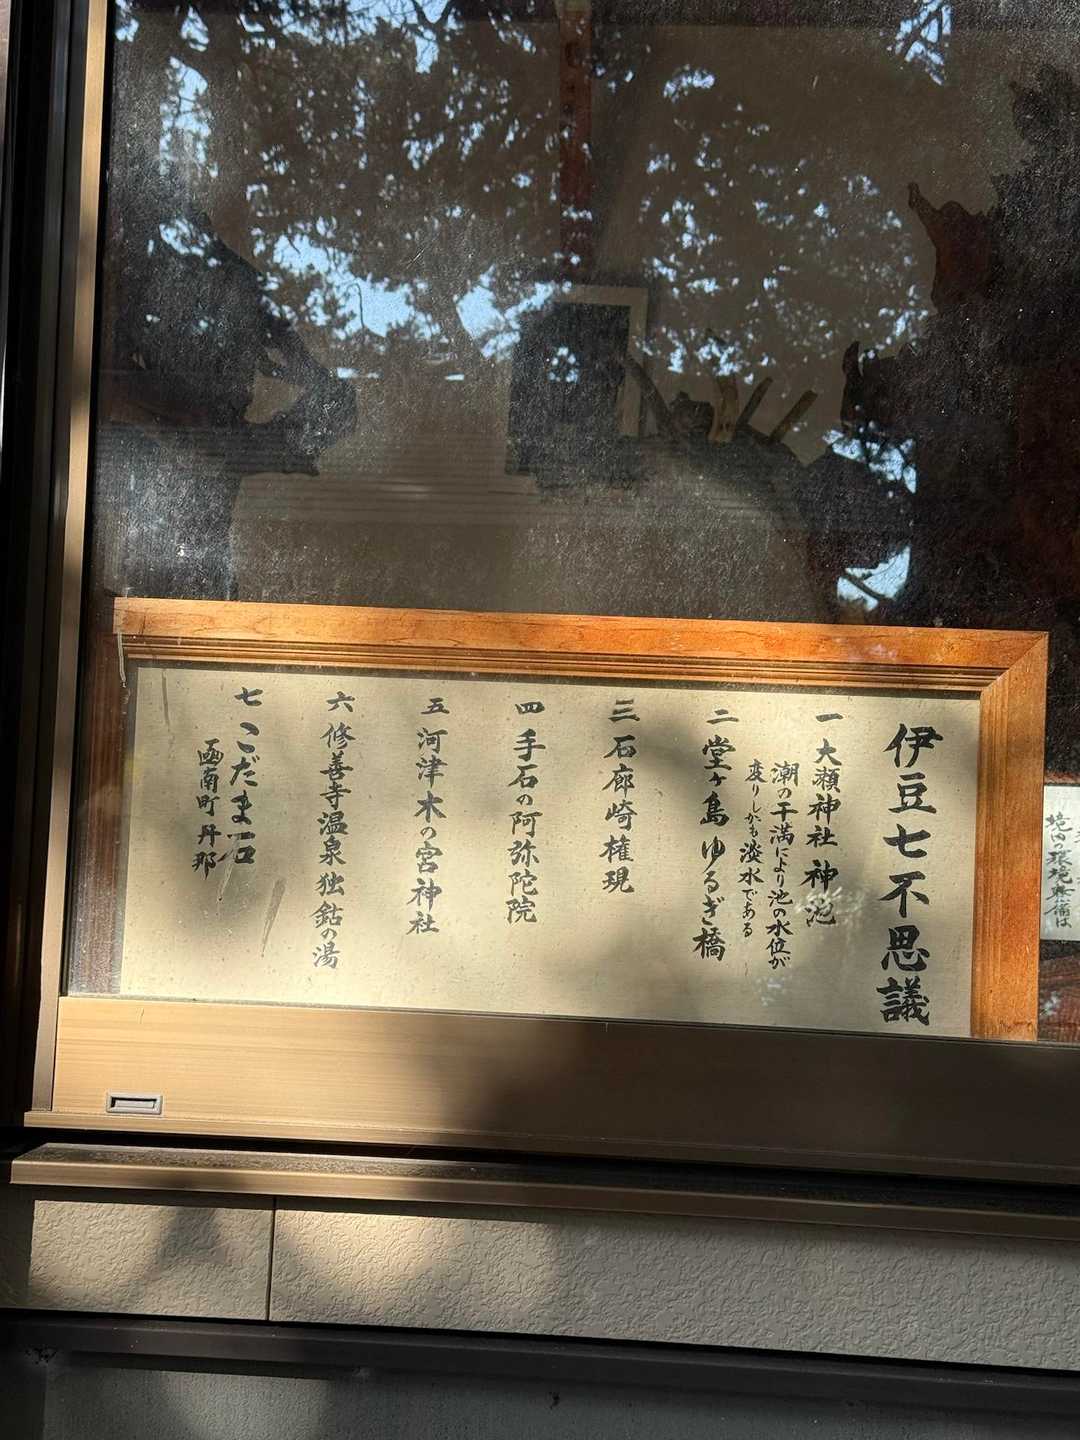 伊豆七不思議
一 大瀬神社 神池
潮の干満により池の水位が
変りしかも淡水である
二 堂ヶ島ゆるぎ橋
三 石廊崎権現
四 手石の阿弥陀院
五 河津木の宮神社
六 修善寺温泉独鈷の湯
七 こだま石
函南町丹那